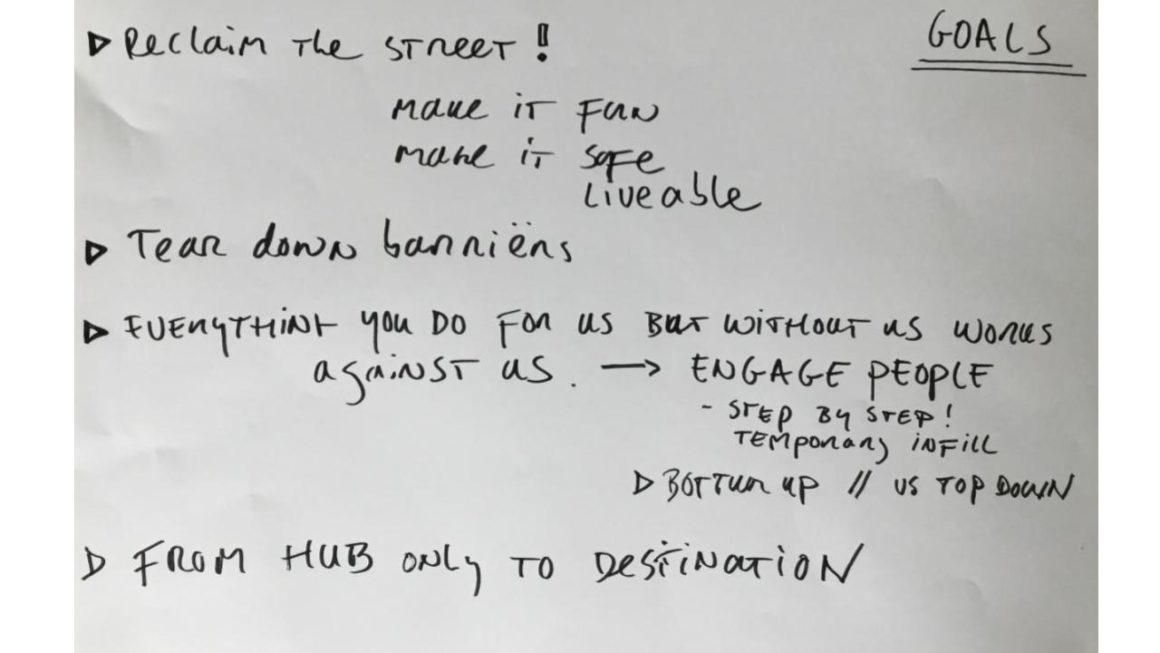 GOALS
▷ Reclaim the street!
make it fun
make it safe
liveable
▷ Tear down barriërs
▷ EVERYTHING YOU DO FOR US BUT WITHOUT US WORKS
against us. → ENGAGE PEOPLE
- STEP BY STEP!
TEMPORARY INFILL
▷ BOTTUM UP // VS TOP DOWN
▷ FROM HUB ONLY TO DESTINATION